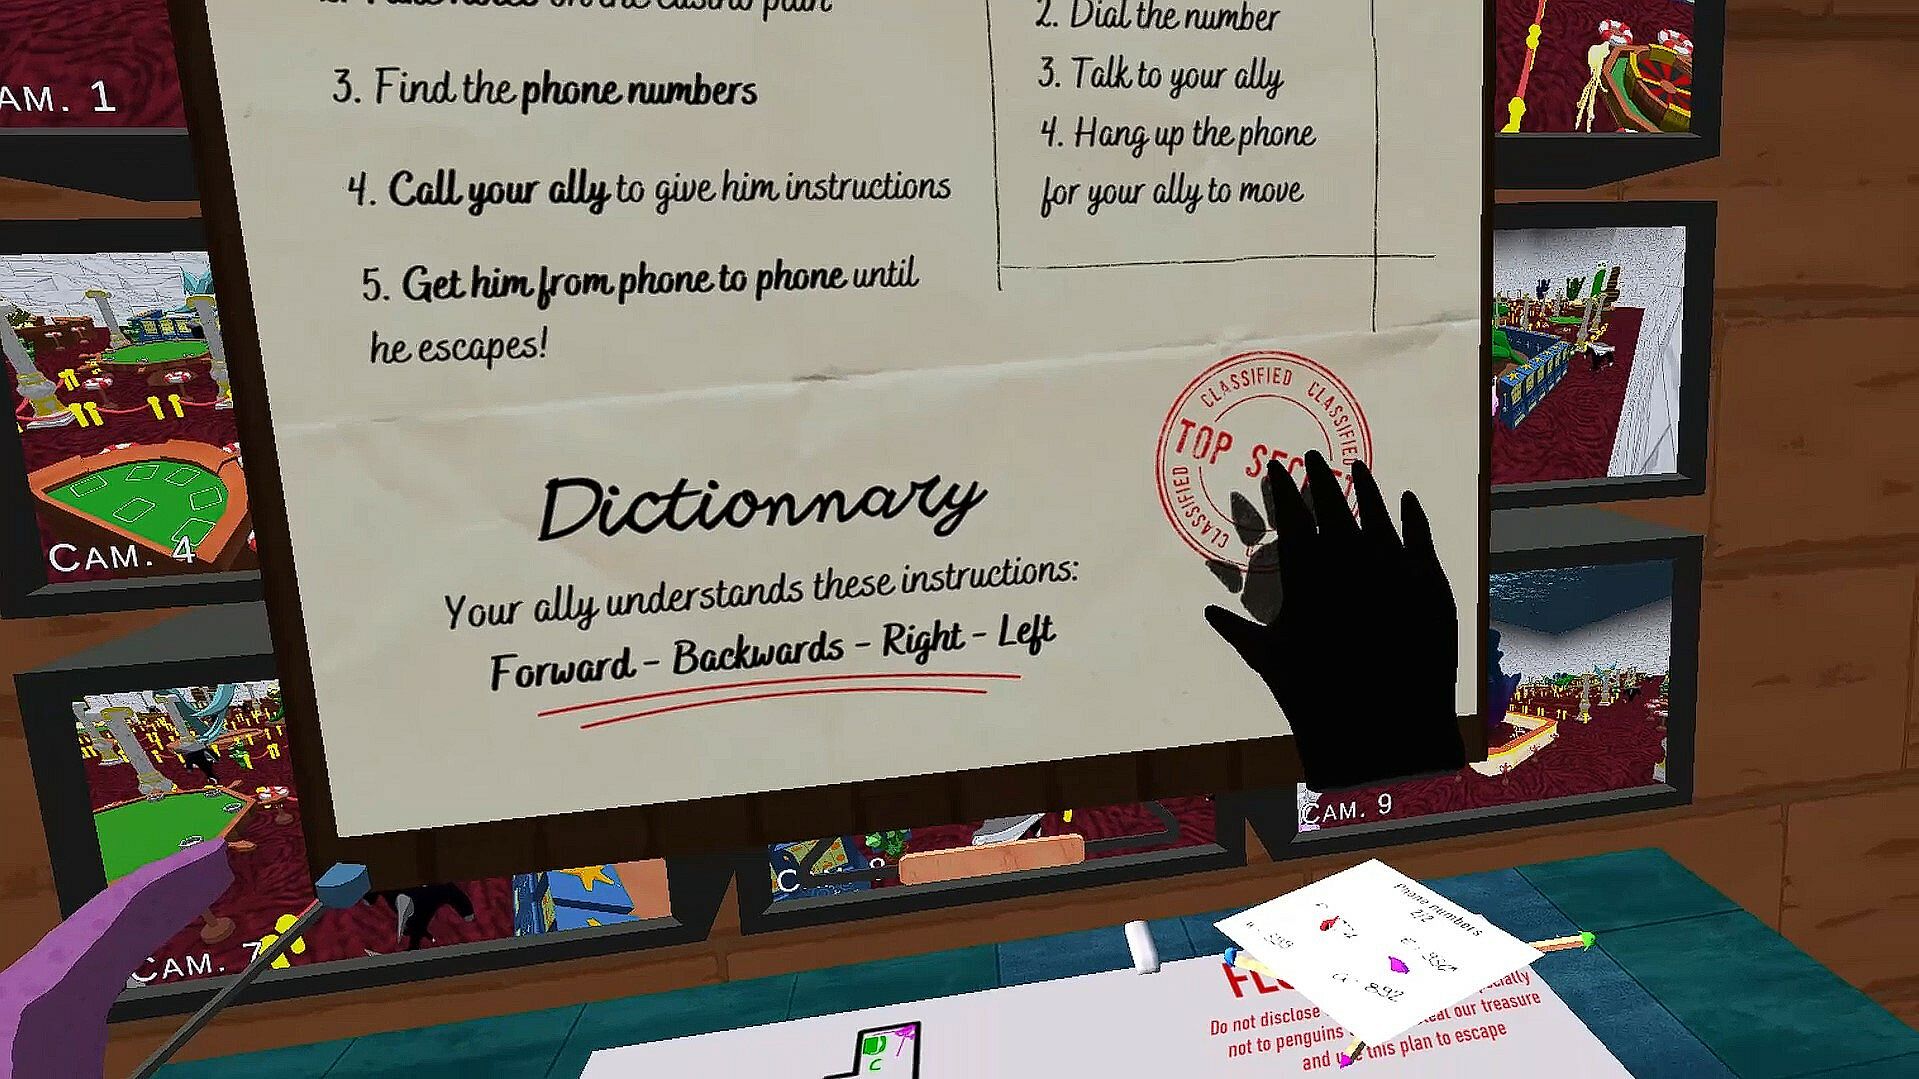 3. Find the phone numbers
4. Call your ally to give him instructions
5. Get him from phone to phone until
he escapes!
2. Dial the number
3. Talk to your ally
4. Hang up the phone
for your ally to move
CLASSIFIED CLASSIFIED
TOP
CLASSIFIED CLASSIFIED
Dictionnary
Your ally understands these instructions:
Forward - Backwards - Right - Left
AM. 1
CAM. 4
CAM. 7
C
CAM. 9
Phone numbers
2/2
892
Do not disclose
our treasure
not to penguins
this plan to escape
and
C